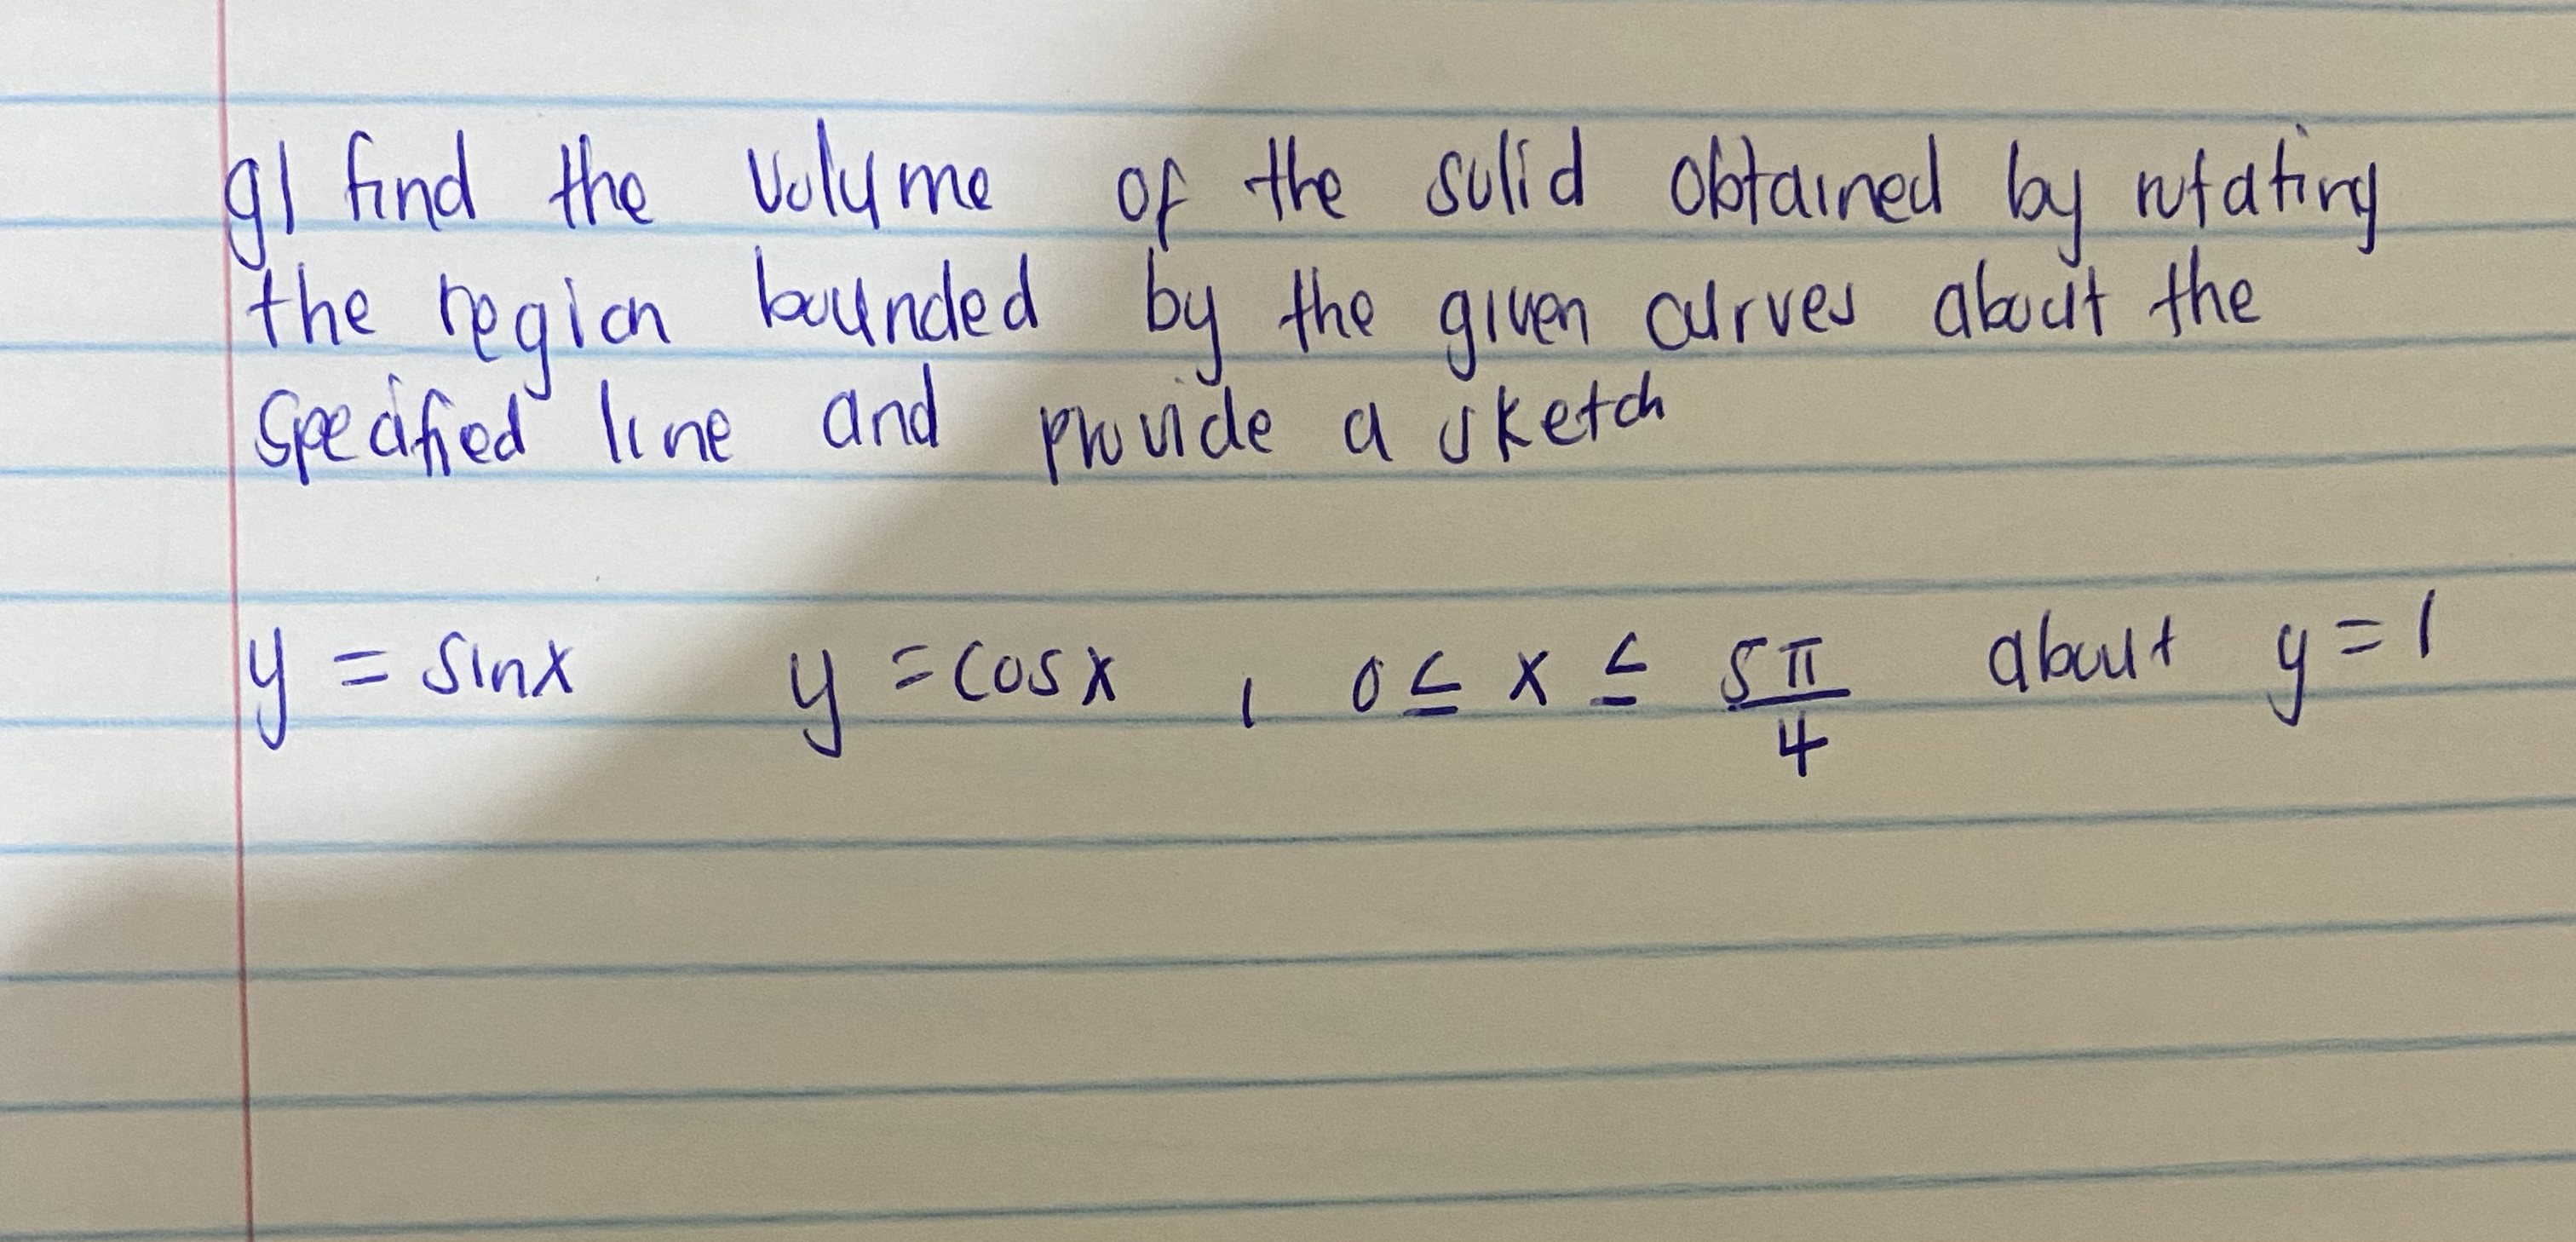 g) find the volume of the solid obtained by rotating
the region bounded by the given curves about the
specified line and provide a sketch
y = sinx y = cosx , 0 ≤ x ≤ 5π/4 about y = 1